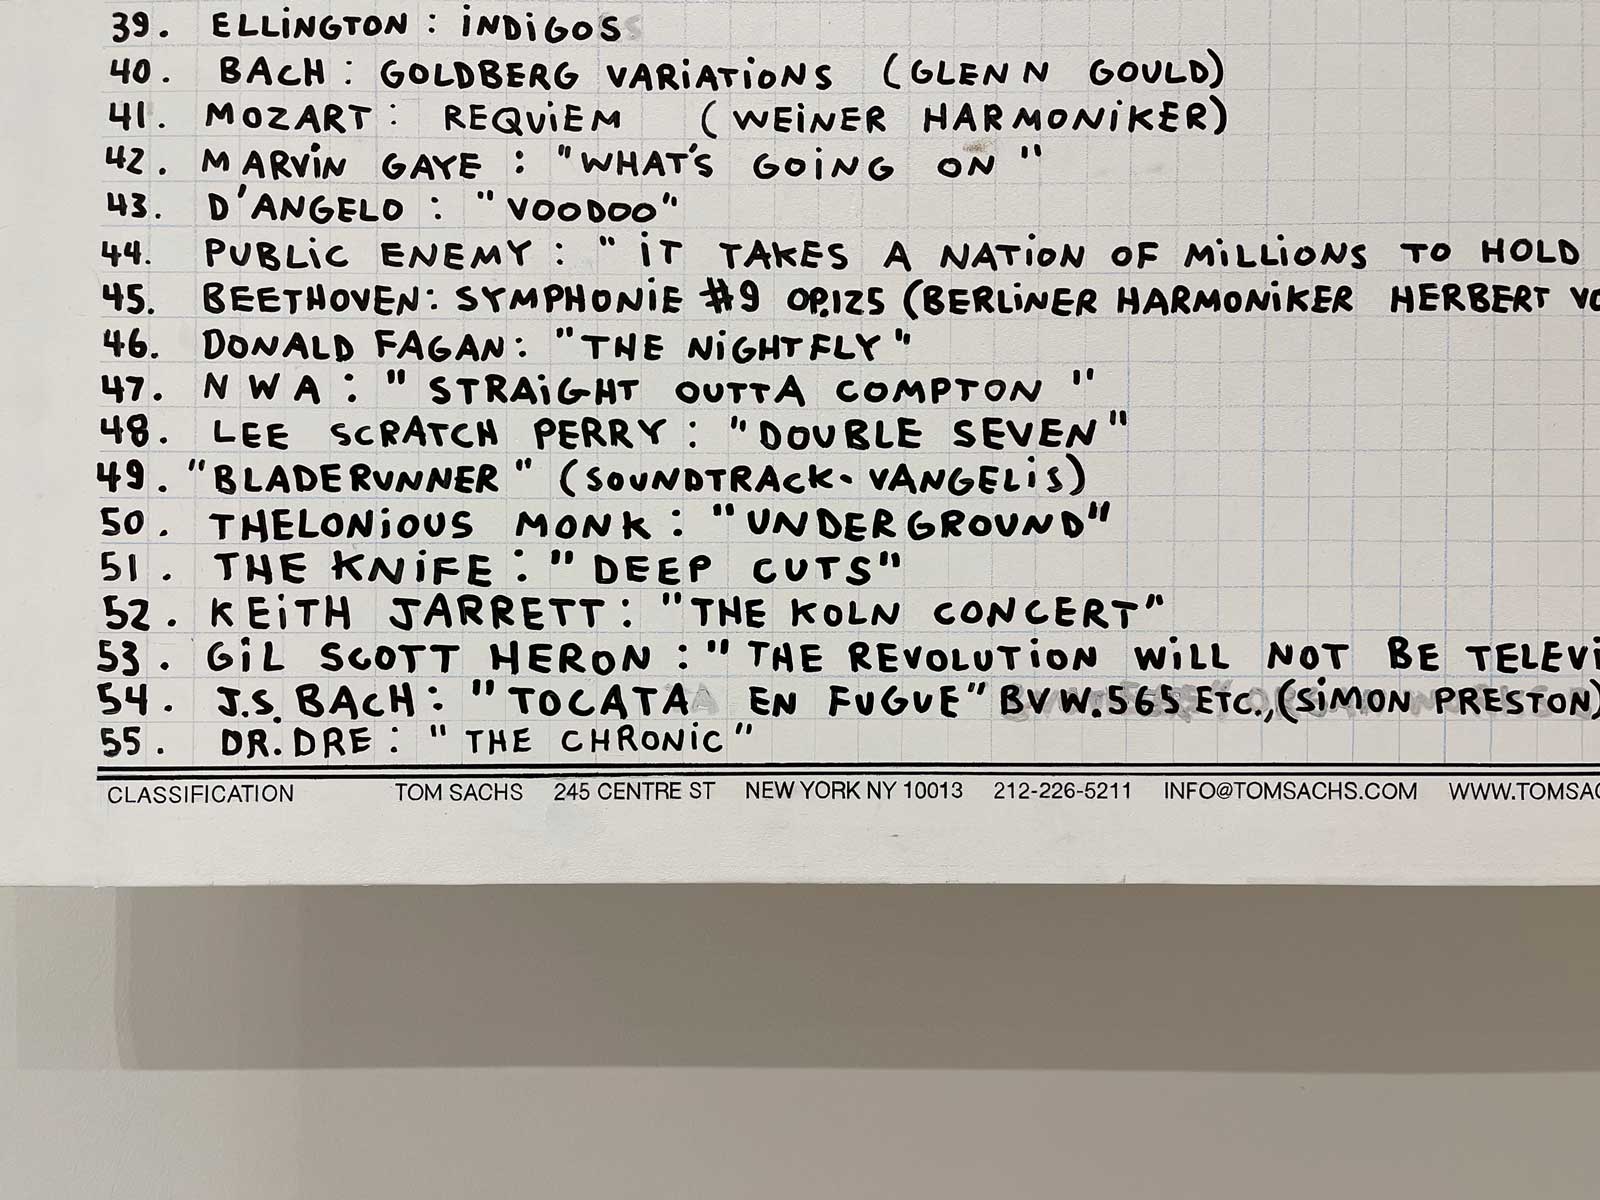 39. ELLiNGTON : iNDiGOS
40. BACH : GOLDBERG VARiATiONS (GLENN GOULD)
41. MOZART : REQUiEM (WEiNER HARMONiKER)
42. MARViN GAYE : "WHAT'S GOiNG ON"
43. D'ANGELO : "VOODOO"
44. PUBLiC ENEMY : "iT TAKES A NATiON OF MiLLiONS TO HOLD
45. BEETHOVEN: SYMPHONiE #9 OP.125 (BERLiNER HARMONiKER HERBERT VO
46. DONALD FAGAN: "THE NiGHTFLY"
47. N W A : "STRAiGHT OUTTA COMPTON"
48. LEE SCRATCH PERRY : "DOUBLE SEVEN"
49. "BLADERUNNER" (SOUNDTRACK - VANGELiS)
50. THELONiOUS MONK : "UNDERGROUND"
51. THE KNiFE : "DEEP CUTS"
52. KEiTH JARRETT : "THE KOLN CONCERT"
53. GiL SCOTT HERON : "THE REVOLUTiON WiLL NOT BE TELEVi
54. J.S. BACH : "TOCATA EN FUGUE" BVW.565 ETC., (SiMON PRESTON)
55. DR. DRE : "THE CHRONiC"
CLASSIFICATION TOM SACHS 245 CENTRE ST NEW YORK NY 10013 212-226-5211 INFO@TOMSACHS.COM WWW.TOMSAC